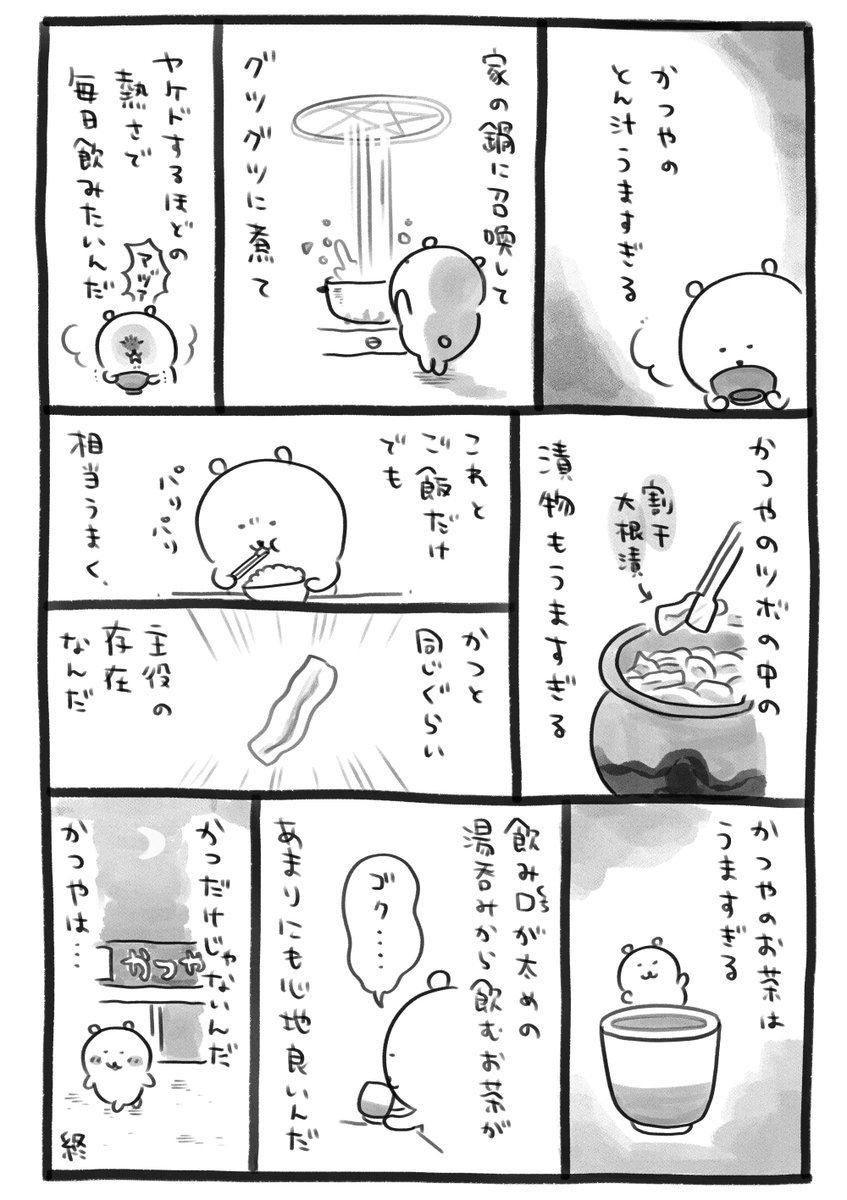 かつやの
とん汁うますぎる
家の鍋に召喚して
グツグツに煮て
ヤケドするほどの
熱さで
毎日飲みたいんだ
アヅァ
かつやのツボの中の
漬物もうますぎる
割干
大根漬
これと
ご飯だけ
でも
相当うまく、
パリパリ
かつと
同じぐらい
主役の
存在
なんだ
かつやのお茶は
うますぎる
飲み口が太めの
くち
湯呑みから飲むお茶が
あまりにも心地良いんだ
ゴク……
かつだけじゃないんだ
かつやは…
かつや
終